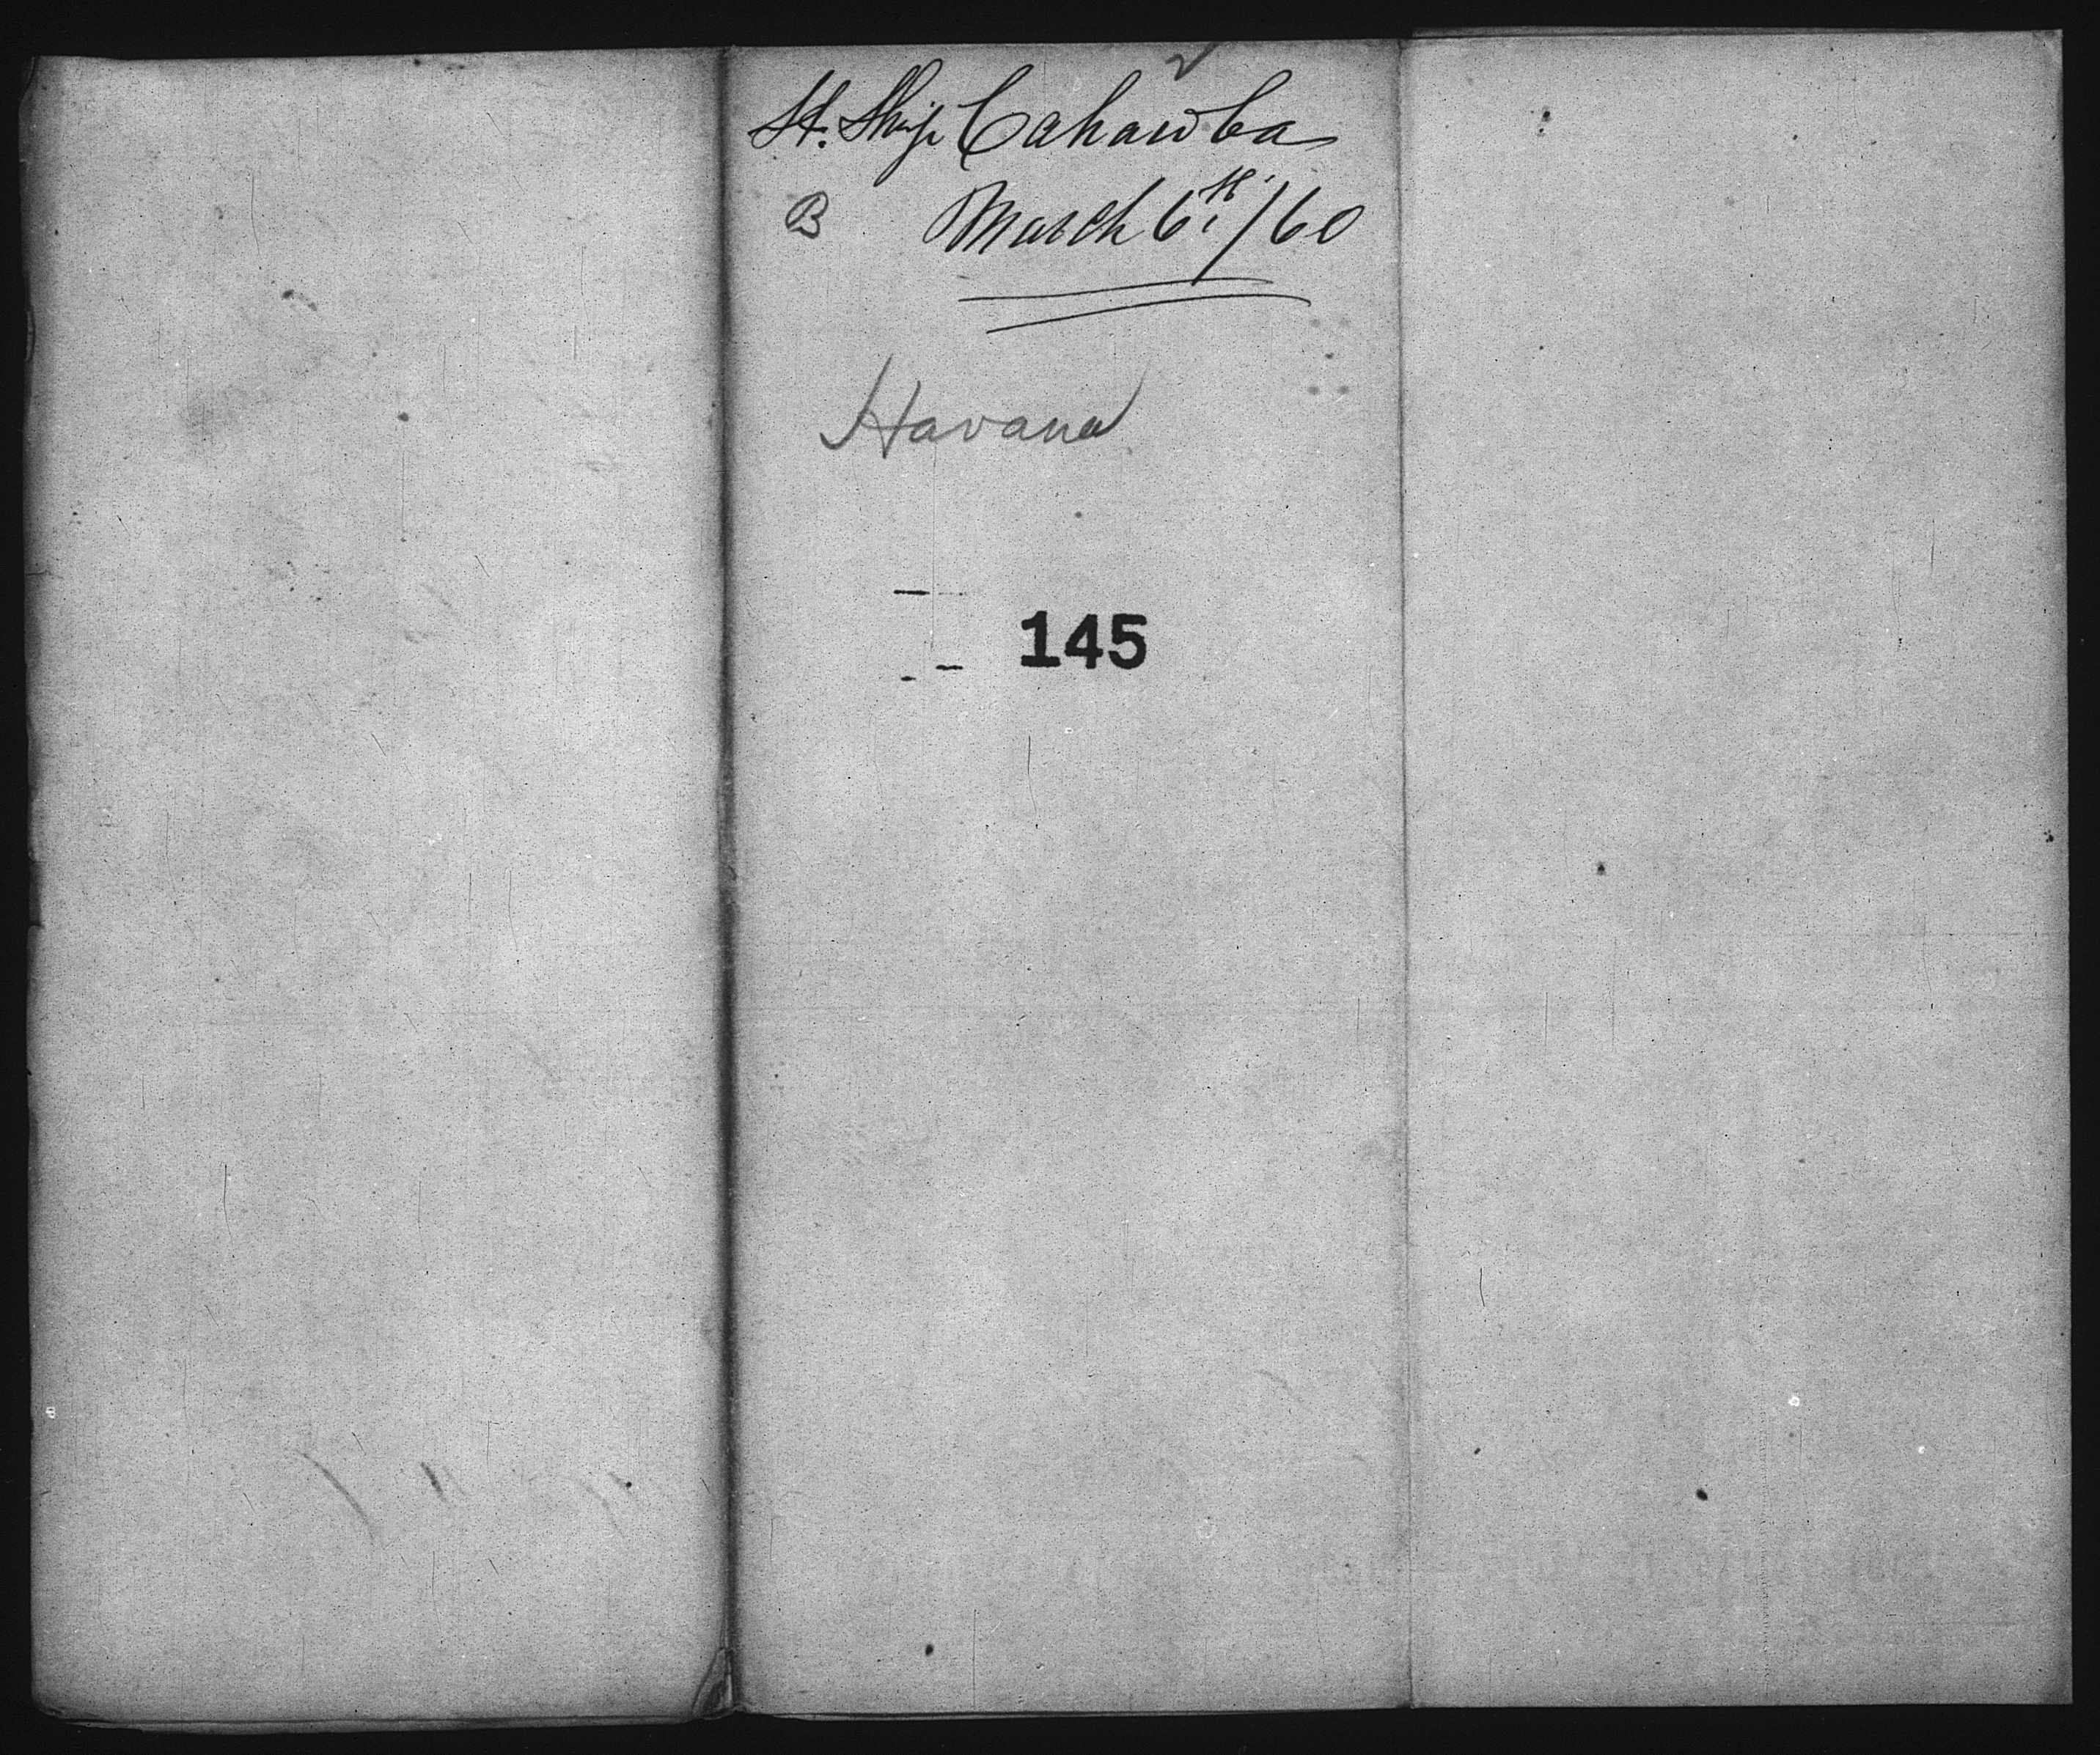 St. Ship Cahawba
B March 6th/60
Havana
145